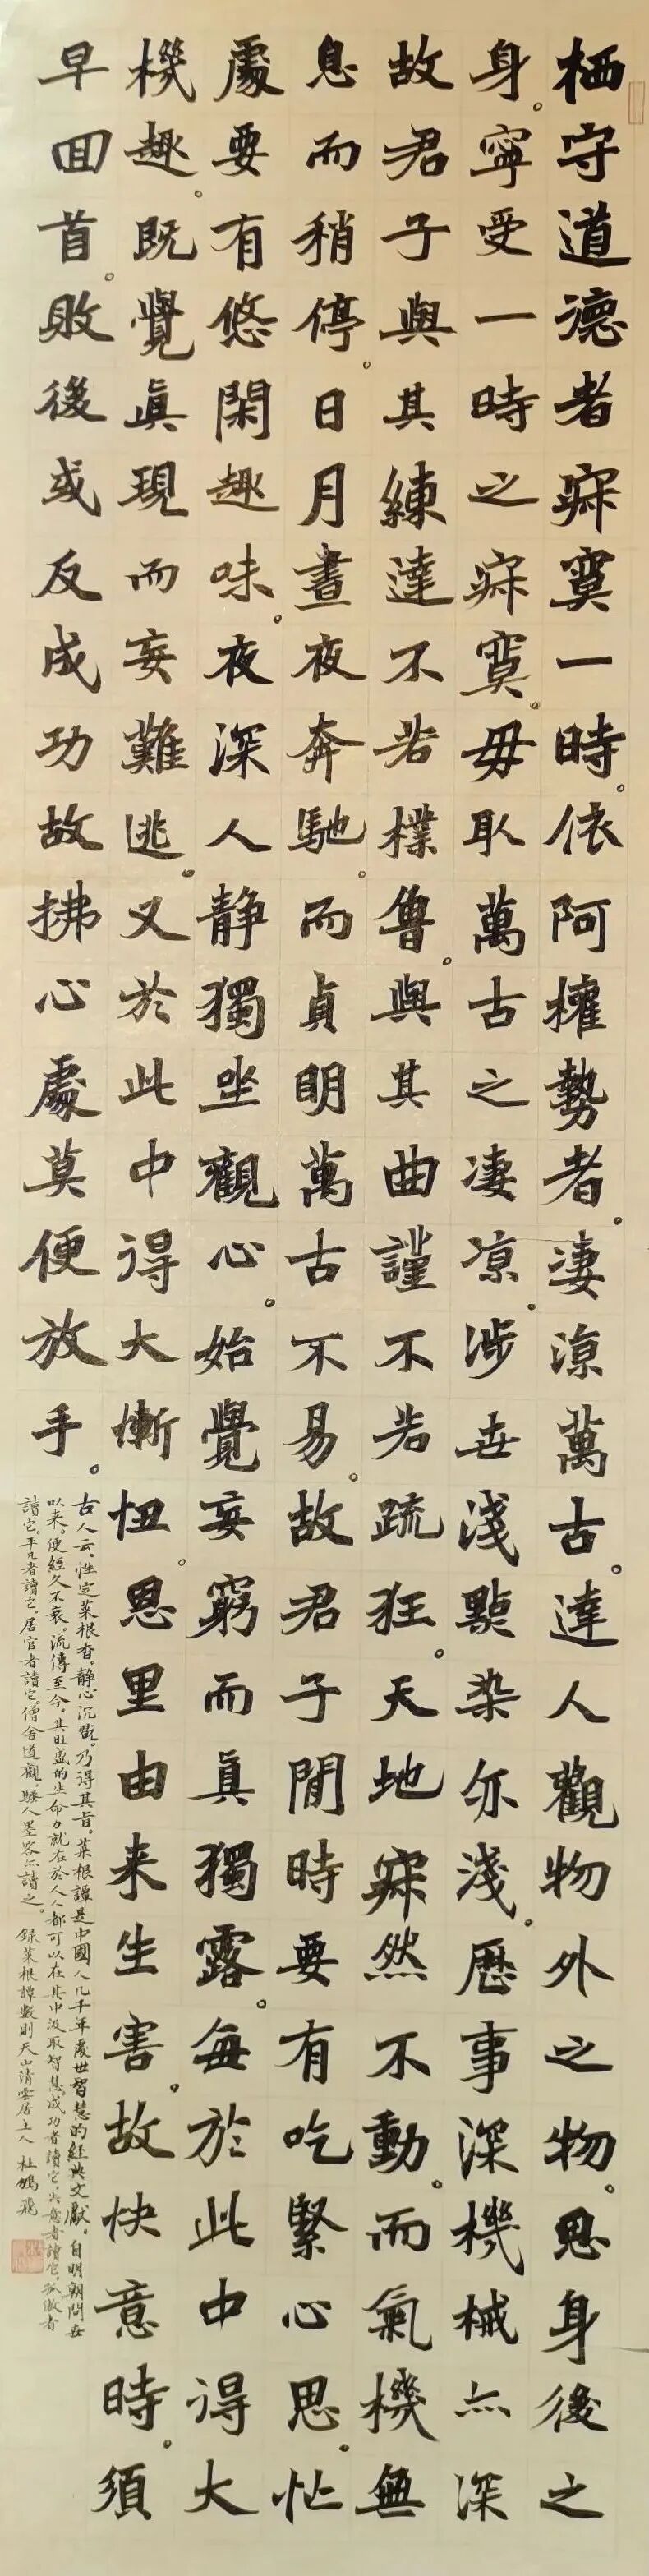 栖守道德者寂寞一時。依阿權勢者。淒涼萬古。達人觀物外之物。思身後之
身。寧受一時之寂寞。毋取萬古之凄凉。涉世淺點染亦淺。歷事深機械亦深
故君子與其練達不若樸魯。與其曲謹不若疏狂。天地寂然不動。而氣機無
息而稍停。日月晝夜奔馳。而貞明萬古不易。故君子閒時要有吃緊心思。忙
處要有悠閑趣味。夜深人靜獨坐觀心。始覺妄窮而真獨露。每於此中得大
機趣。既覺真現而妄難逃。又於此中得大慚忸。恩里由来生害。故快意時。須
早回首。敗後或反成功故拂心處莫便放手。
古人云。性定菜根香。静心沉玩。乃得其旨。菜根譚是中國人几千年處世智慧的經典文獻。自明朝問世
以来。便經久不衰。流傳至今。其旺盛的生命力就在於人人都可以在其中汲取智慧。成功者讀它。失意者讀它。孤傲者
讀它。平凡者讀它。居官者讀它。僧舍道觀。騷人墨客亦讀之。録菜根譚數則天山清雲居主人 杜鵬飛